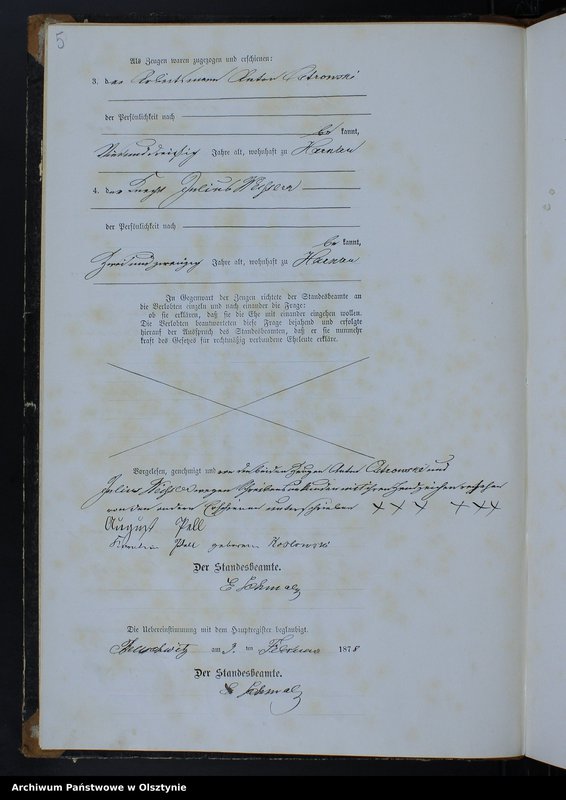 5
Als Zeugen waren zugezogen und erschienen:
3. der Arbeitsmann Anton Petrowski
der Persönlichkeit nach
be kannt,
Jahre alt, wohnhaft zu Harnau
4. der Knecht Julius
der Persönlichkeit nach
be kannt,
zwei und zwanzig Jahre alt, wohnhaft zu Harnau
In Gegenwart der Zeugen richtete der Standesbeamte an
die Verlobten einzeln und nach einander die Frage:
ob sie erklären, daß sie die Ehe mit einander eingehen wollen.
Die Verlobten beantworteten diese Frage bejahend und erfolgte
hierauf der Ausspruch des Standesbeamten, daß er sie nunmehr
kraft des Gesetzes für rechtmäßig verbundene Eheleute erkläre.
Vorgelesen, genehmigt und von den beiden Zeugen Anton Petrowski und
Julius wegen Schreibensunkunde mit ihren Handzeichen versehen
von den andern Erschienenen unterschrieben XXX XXX
August Pell
Pell geborene Koslowski
Der Standesbeamte.
E Schmalz
Die Uebereinstimmung mit dem Hauptregister beglaubigt.
am 9. ten Februar 1878
Der Standesbeamte.
E Schmalz
Archiwum Państwowe w Olsztynie